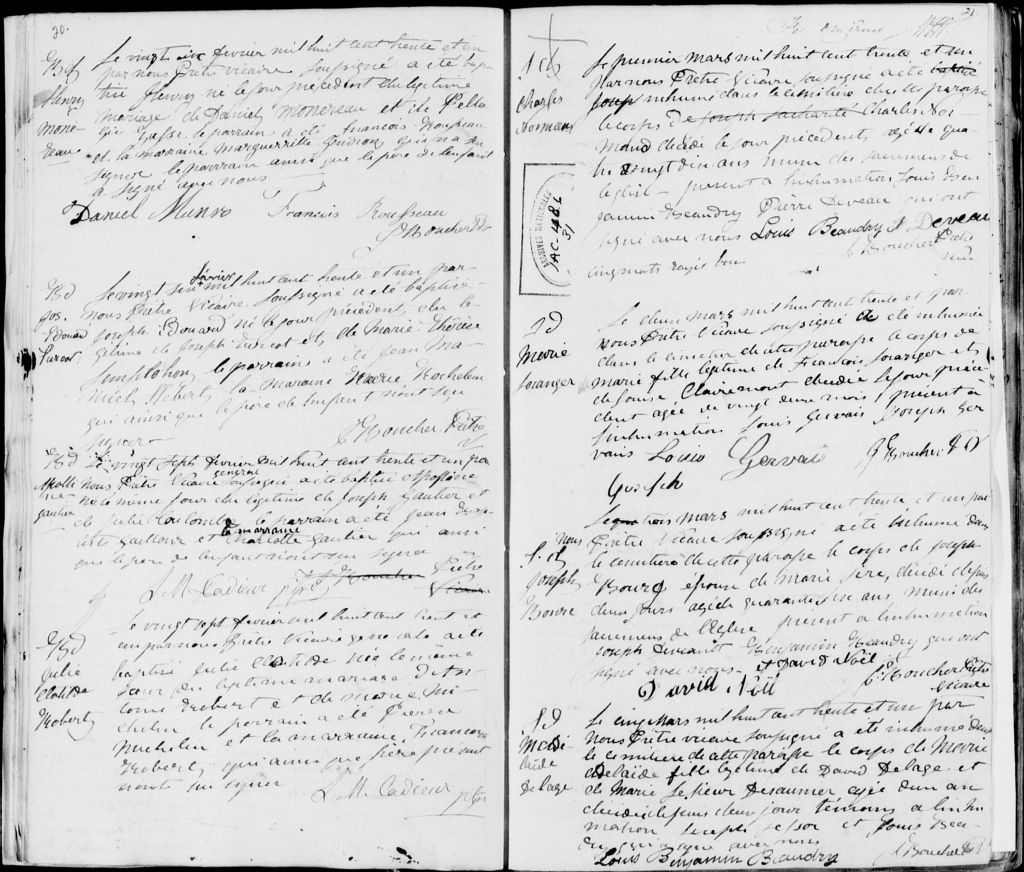 20.
Bd
Henry
Mon-
deau
Le vingt six fevrier mil huit cent trente et un
par nous Prêtre vicaire soussigné a eté bap-
tisé Henry né le jour précédent du legitime
mariage de Daniel Mondeau et de Pella
gie le parrain a eté francois Rousseau
et la marraine Margueritte qui n'a su
signer le parrain ainsi que le pere de l'enfant
a signé avec nous
Daniel Munro Francois Rousseau
Boucher Ptr
Bd
Jos.
Edouard
Turcot
Le vingt six fevrier mil huit cent trente et un par
nous Prêtre Vicaire soussigné a eté baptisé
Joseph Edouard né le jour précédent du le-
gitime de Joseph Turcot et de Marie Thérèse
l'omption, le parrain a eté Jean Ma-
Hebert, la maraine Marie Rocheleau
qui ainsi que le père de l'enfant n'ont seu
signer
Boucher Prêtre
Bd
Apolli-
ne
gautier
Le vingt sept fevrier mil huit cent trente et un pa
nous Prêtre Vicaire general soussigné a eté baptisé Appoline
née le même jour du legitime de Joseph Gautier et
de Julie Coulombe le parrain a eté Jean
et la marraine Charlotte Gautier qui ainsi
que le pere de l'enfant n'ont seu signer
L. M. Cadieux ptre Boucher Prêtre
Vicaire
Bd
Julie
Clotilde
Robert
Le vingt sept fevrier mil huit cent trent et
un par nous Prêtre Vicaire general a eté
baptisé Julie Clotilde née le même
jour du legitime mariage d'An-
toine Robert et de Marie Mi-
chelin le parrain a eté Pierre
Michelin et la marraine Francoise
Robert, qui ainsi que père présent
n'ont pu signer
L. M. Cadieux ptre
21.
onzième
S d
Charles
Normand
Le premier mars mil huit cent trente et un
par nous Prêtre Vicaire soussigné a eté baptisé
Joseph inhumé dans le cimetière de cette paroisse
le corps de Joseph Charles Nor
mand décédé le jour précédent, agé de qua
tre vingt dix ans muni des sacremens de
l'eglise present a l'inhumation Louis Ben
jamin Beaudry Pierre Deveau qui ont
signé avec nous Louis Beaudry P Deveau
Boucher Prêtre
cinq mots rayés bon
ARCHIVES NATIONALES
AC. 4486
31
S d
Marie
Loranger
Le deux mars mil huit cent trente et par
nous Prêtre Vicaire soussigné a eté inhumée
dans le cimetiere de cette paroisse le corps de
Marie fille legitime de Francois Loranger et
de Louise Clairemont decedée le jour préce-
dent agee de vingt deux mois, present a
l'inhumation Louis Gervais Joseph Ger
vais Louis Gervais J Boucher Ptr
Joseph
S. d
Joseph
Bourc
Le trois mars mil huit cent trente et un par
nous Prêtre Vicaire soussigné a eté inhumé dans
le cimetière de cette paroisse le corps de Joseph
Bourg époux de Marie Sire, décédé depuis
deux jours agé de quarante ans muni des
sacremens de l'Eglise present a l'inhumation
Joseph Benjamin Beaudry qui ont
signé avec nous et David Noël
David Noël J Boucher Prêtre
Vicaire
S d
Made-
laide
Delage
Le cinq Mars mil huit cent trente et un par
Nous Prêtre vicaire soussigné a été inhumée dans
le cimetière de cette paroisse le corps de Marie
Adelaide fille legitime de David Delage et
de Marie Lesieur Desaunier agée d'un an
decedé depuis deux jour témoins a l'inhu
mation Joseph et Louis Beau
dry qui a signé avec nous
Louis Benjamin Beaudry J Boucher Ptr